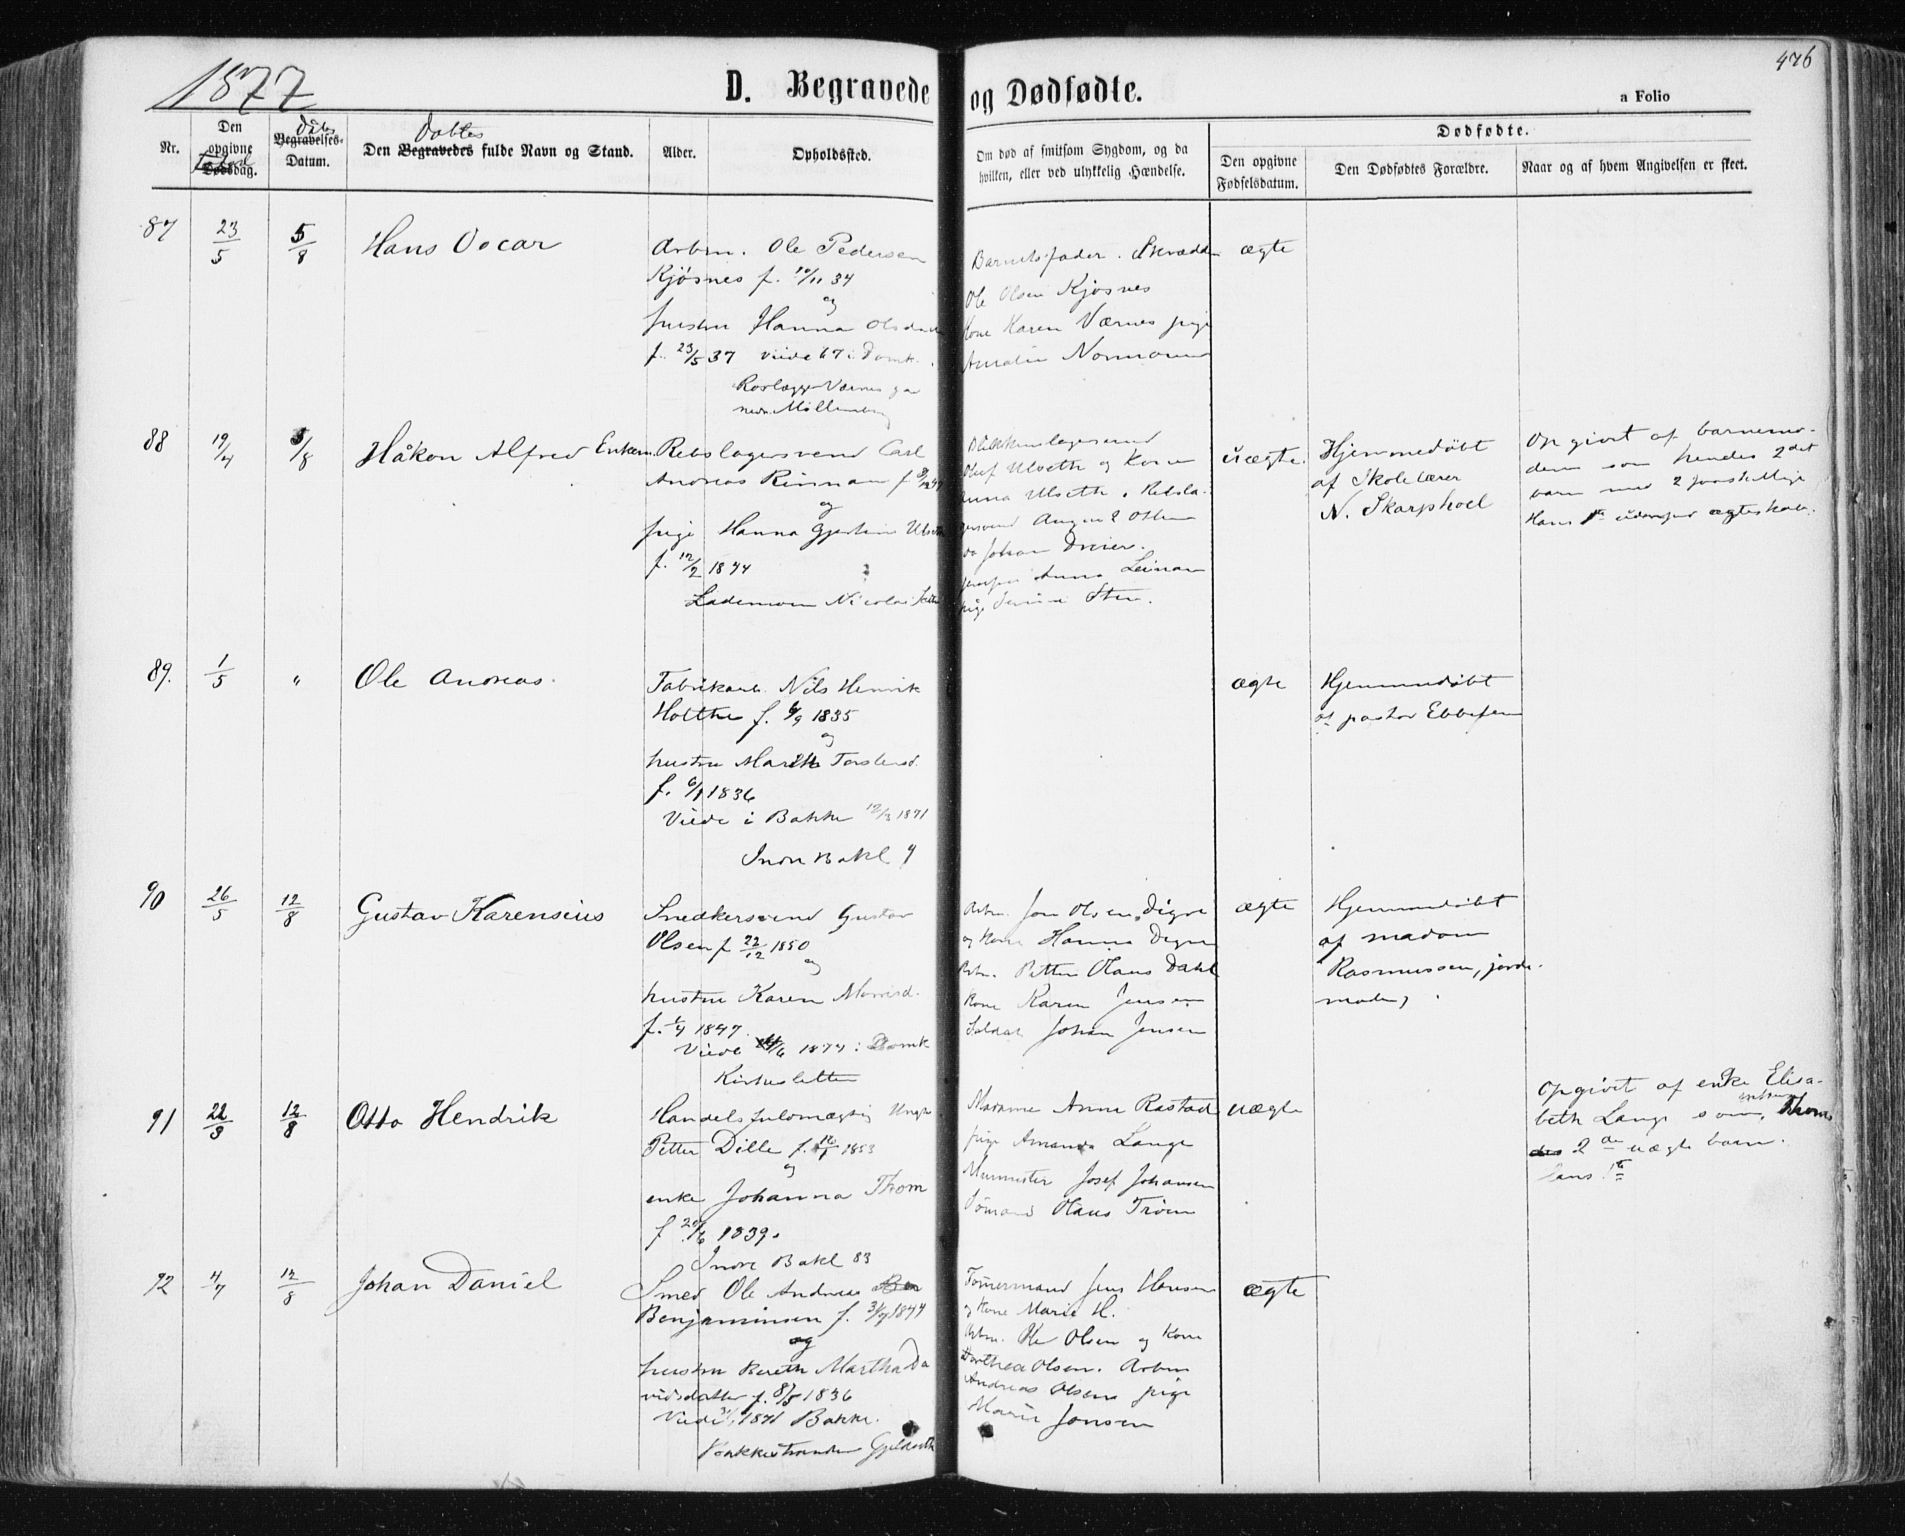 1877
D. Begravede og Dødfødte.
476
a Folio
Nr.
Den opgivne Dødsdag.
Fødsel
Begravelses-Datum.
Dåbs
Den Begravedes fulde Navn og Stand.
Døbtes
Alder.
Opholdssted.
Om død af smitsom Sygdom, og da
hvilken, eller ved ulykkelig Hændelse.
Dødfødte.
Den opgivne
Fødselsdatum.
Den Dødfødtes Forældre.
Naar og af hvem Angivelsen er skeet.
87 23/5 5/8 Hans Oscar
Arbm. Ole Pedersen
Kjøsnes f. 10/11 34
og
hustru Hanna Olsdatter
f. 23/5 37 viede 67 i Domk.
Møllenberg
Barnets fader. Skrædder
Ole Olsen Kjøsnes
Kone Karen Værnes pige
Amalie Normann
ægte
88 19/4 5/8 Håkon Alfred
Rebslagersvend Carl
Andreas Rinnan f.
og
pige Hanna Gjertine Ulseth
f. 12/2 1844
Lademoen Nicolai
Oluf Ulseth og Kone
Anna Ulseth. Rebsla-
gersvend August Olsen
Johan Dreier.
Anna Leinan
pige
uægte.
Hjemmedøbt
af Skolelærer
N. Skarphoel
Opgivet af barnemo-
deren som hendes 2det
barn med 2 forskjellige
Hans 1te udenfor ægteskab.
89. 1/5 " Ole Andreas.
Fabrikarb. Nils Henrik
Holthe f. 6/9 1835
og
hustru Marith Torstensd.
f. 6/1 1836
Viede i Bakke 12/3 1871
Indre Bakl 9
ægte
Hjemmedøbt
af pastor Ebbesen
90 26/5 12/8 Gustav Karensius
Snedkersvend Gustav
Olsen f 22/12 1850
og
hustru Karen Monsd.
f. 1/4 1847.
Viede 1874 i Domk
Kirkesletten
Arbm. Jon Olsen Digre
og Kone Hanna Digre
Arbm. Petter Olaus Dahl
Kone Karen Jensen
Soldat Johan Jensen
ægte
Hjemmedøbt
af madam
Rasmussen, jorde-
moder,
91 22/3 12/8 Otto Hendrik
Handelsfulmægtig Ungk.
Petter Dille f. 16/1 1853
og
enke Johanna Thom
f. 20/6 1839.
Indre Bakl 83
Madame Anne Rastad
pige Amanda Lange
Murmester Josef Johansen
Tømmermand Olaus Trøen
uægte
Opgivet af enke Elisa-
beth Lange som enken Thoms
2det uægte barn.
hans 1te
92 4/7 12/8 Johan Daniel
Smed Ole Andreas
Benjaminsen f. 3/9 1844
og
hustru Bereth Martha Da
vidsdatter f. 8/5 1836
Viede 1871 Bakke.
Bakkestranden Gjeldseth
Tømmermand Jens Hansen
og Kone Marie H.
Arbm. Ole Olsen og Kone
Dorthea Olsen. Arbm
Andreas Olsen pige
Marie Jonsen
ægte